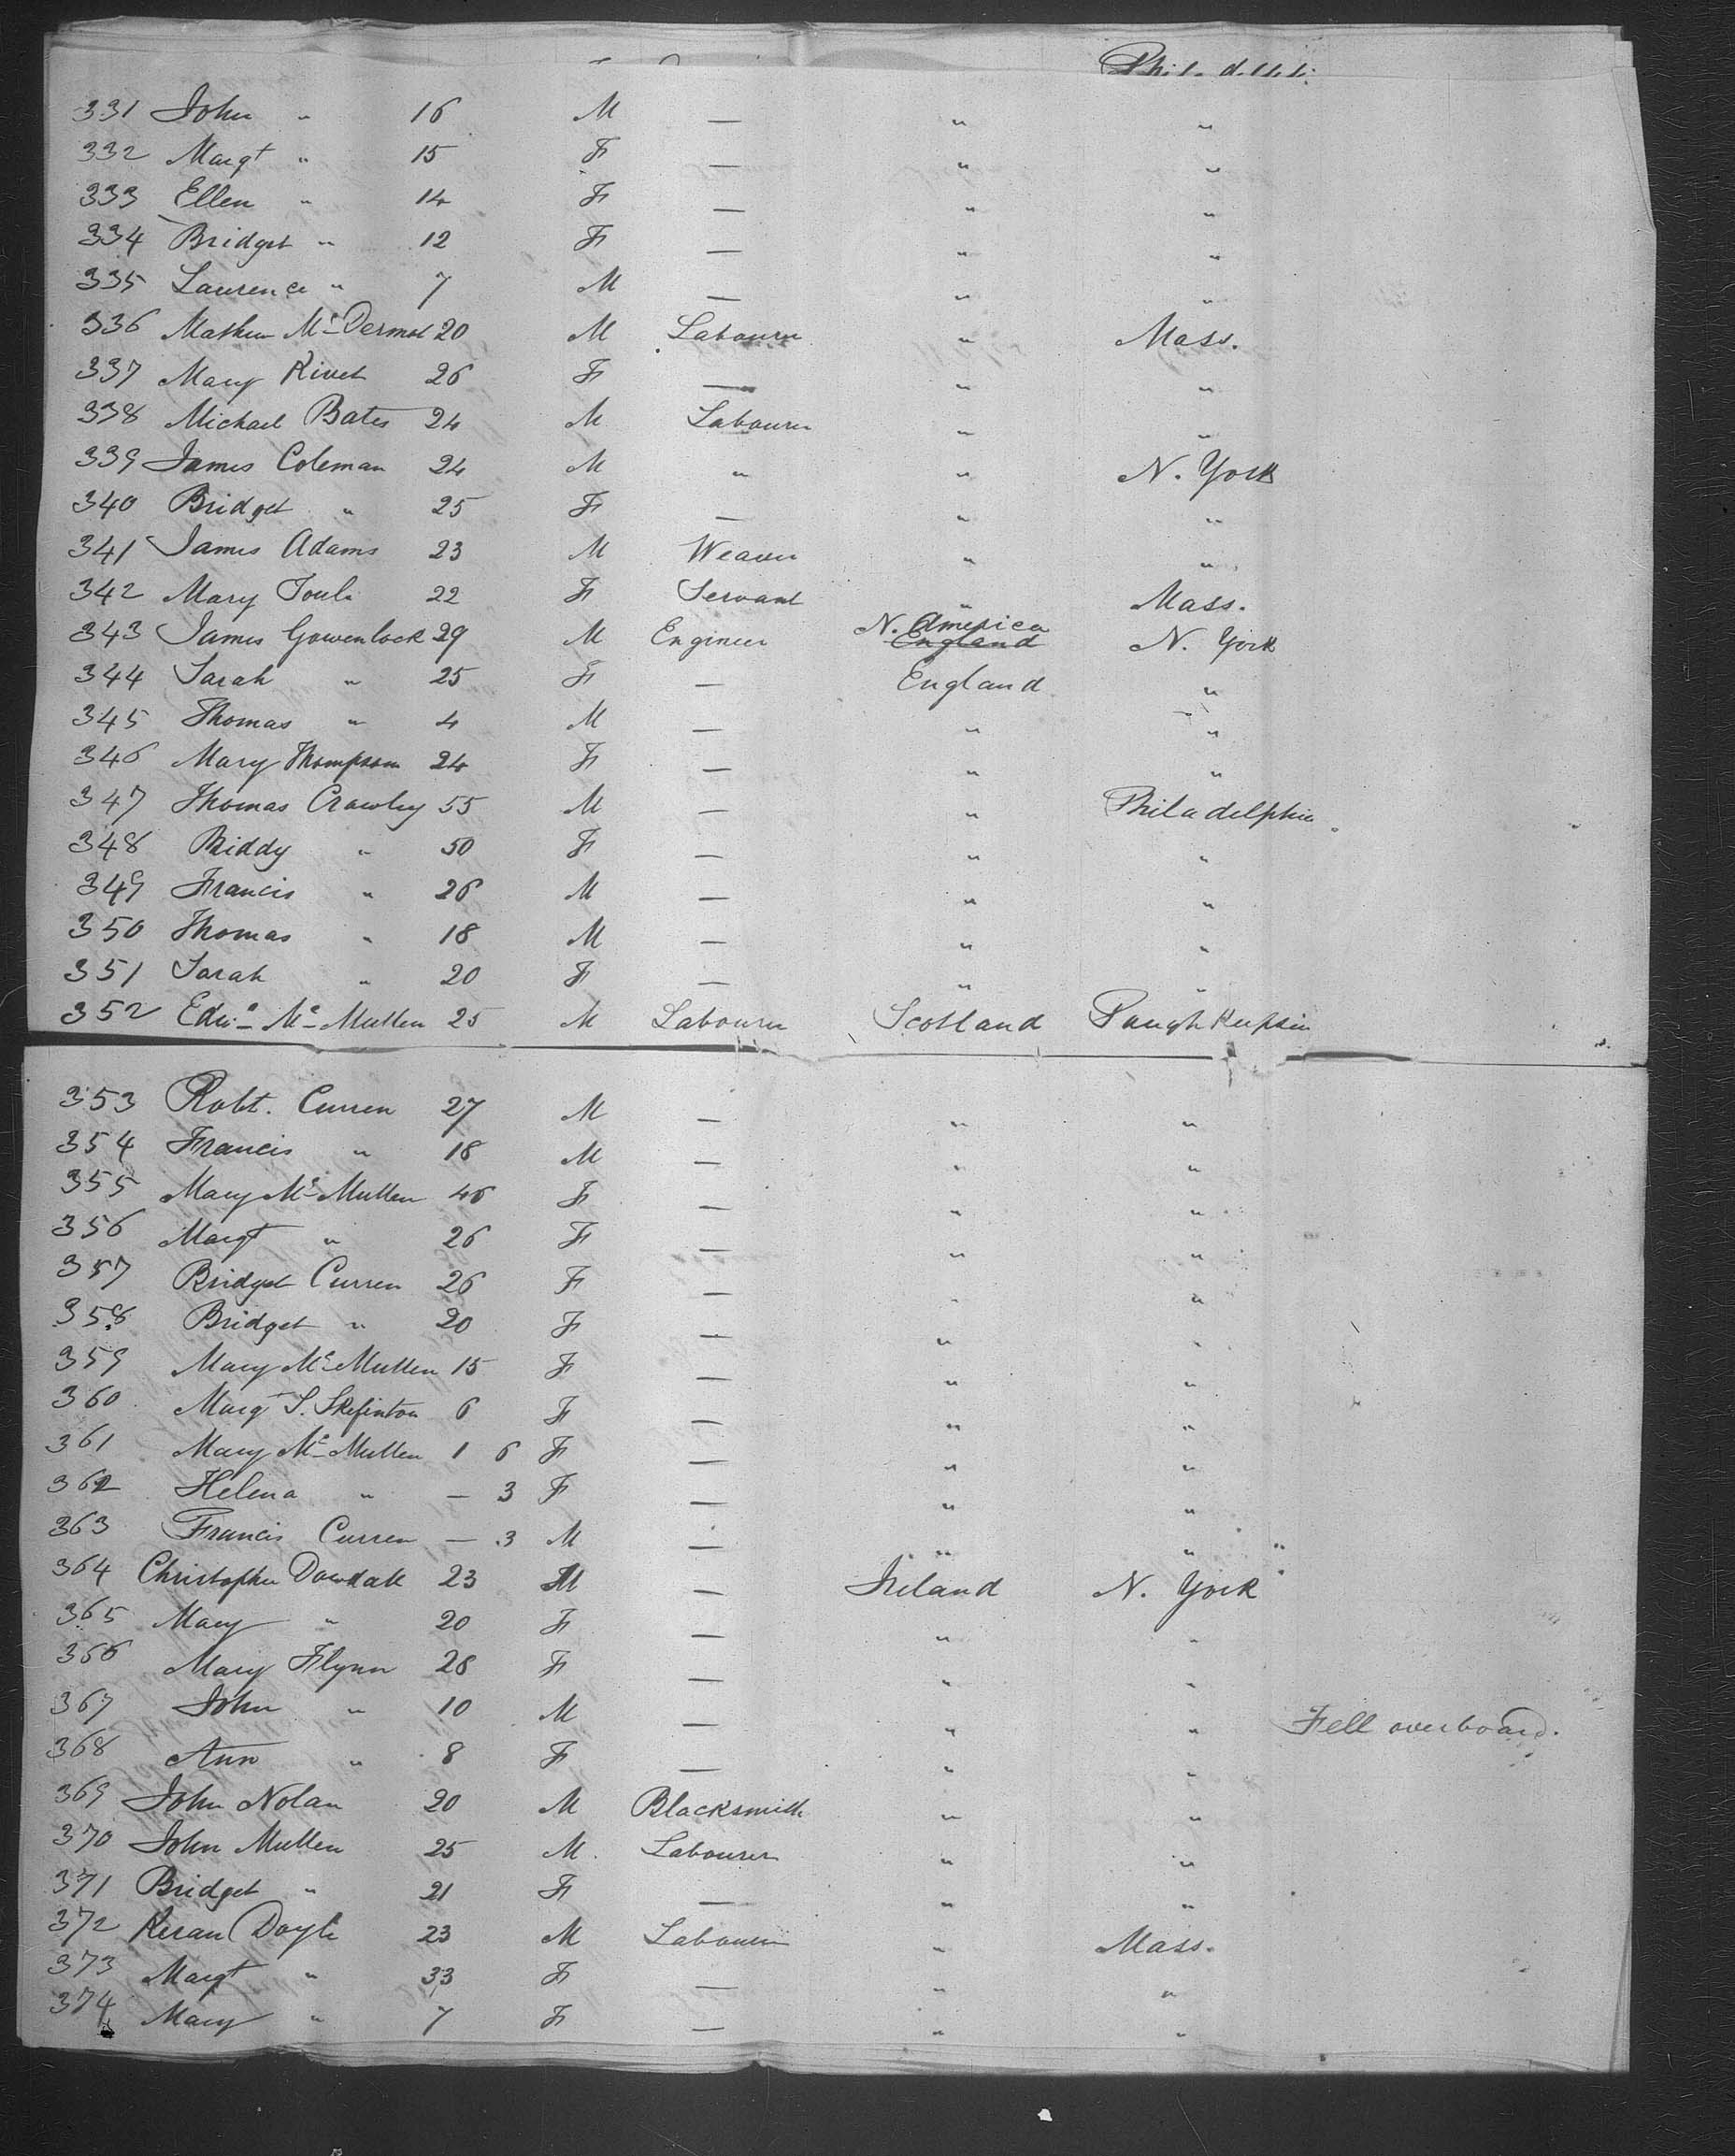 Philadelphi
331 John " 16 M — " "
332 Margt " 15 F — " "
333 Ellen " 14 F — " "
334 Bridget " 12 F — " "
335 Laurence " 7 M — " "
336 Mathew Mc Dermot 20 M Labourer " Mass.
337 Mary Rivet 26 F — " "
338 Michael Bates 24 M Labourer " "
339 James Coleman 24 M " " N. York
340 Bridget " 25 F — " "
341 James Adams 23 M Weaver " "
342 Mary Toule 22 F Servant " Mass.
343 James Gowenlock 29 M Engineer N. America England N. York
344 Sarah " 25 F — England "
345 Thomas " 4 M — " "
346 Mary Thompson 24 F — " "
347 Thomas Crawley 55 M — " Philadelphia
348 Biddy " 50 F — " "
349 Francis " 26 M — " "
350 Thomas " 18 M — " "
351 Sarah " 20 F — " "
352 Edwd Mc Mullen 25 M Labourer Scotland Poughkeepsie
353 Robt. Curren 27 M — " "
354 Francis " 18 M — " "
355 Mary Mc Mullen 46 F — " "
356 Margt " 26 F — " "
357 Bridget Curren 26 F — " "
358 Bridget " 20 F — " "
359 Mary Mc Mullen 15 F — " "
360 Margt S. Skefinton 6 F — " "
361 Mary Mc Mullen 1 6 F — " "
362 Helena " — 3 F — " "
363 Francis Curren — 3 M — " " "
364 Christopher Dowdall 23 M — Ireland N. York
365 Mary " 20 F — " "
366 Mary Flynn 28 F — " "
367 John " 10 M — " " Fell overboard.
368 Ann " 8 F — " "
369 John Nolan 20 M Blacksmith " "
370 John Mullen 25 M. Labourer " "
371 Bridget " 21 F — " "
372 Keran Doyle 23 M Labourer " Mass.
373 Margt " 33 F — " "
374 Mary " 7 F — " "